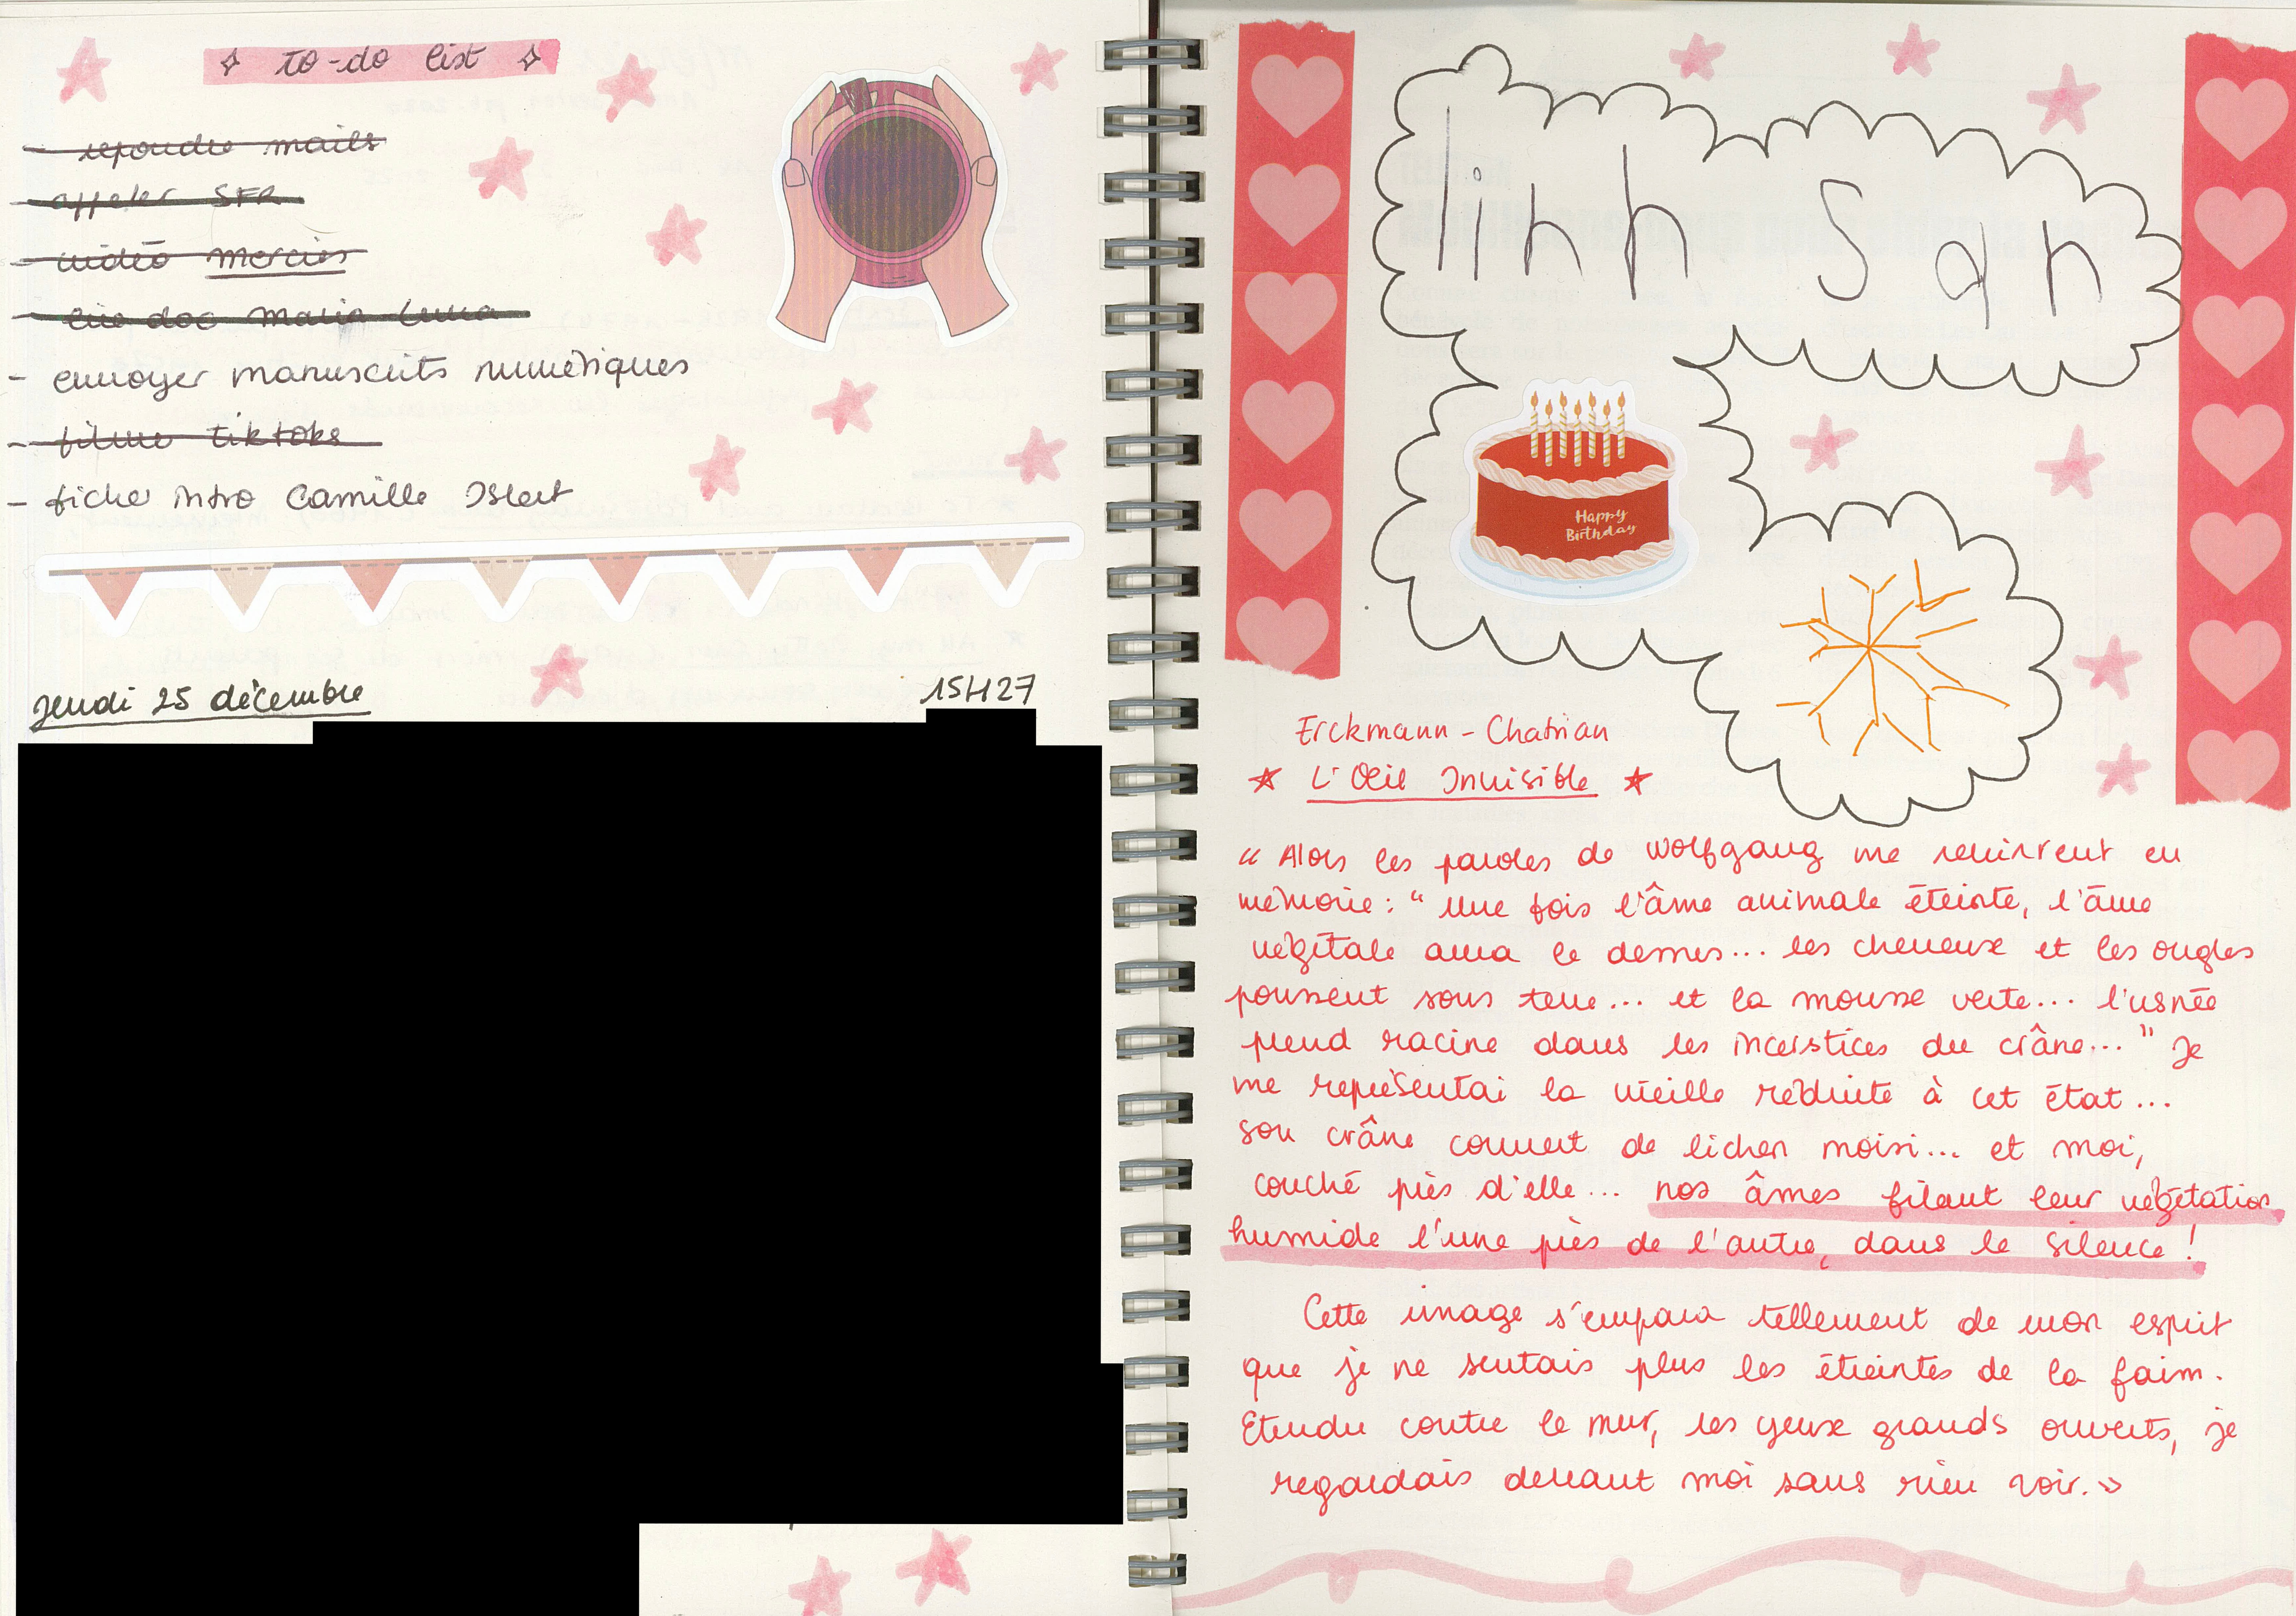 to-do list
- repondre mails
- appeler SFR
- vidéo mercies
- lire doc Maria Luna
- envoyer manuscrits numériques
- filmer tiktoks
- fiche intro Camille Islert
Jeudi 25 décembre
15H27
linh San
Happy
Birthday
Erckmann - Chatrian
L'Oeil Invisible
« Alors les paroles de Wolfgang me revinrent en
mémoire : " Une fois l'âme animale éteinte, l'âme
végétale aura le dessus... les cheveux et les ongles
poussent sous terre... et la mousse verte... l'usnée
prend racine dans les interstices du crâne... " Je
me représentai la vieille réduite à cet état...
son crâne couvert de lichen moisi... et moi,
couché près d'elle... nos âmes filant leur végétation
humide l'une près de l'autre, dans le silence !
Cette image s'empara tellement de mon esprit
que je ne sentais plus les étreintes de la faim.
Etendu contre le mur, les yeux grands ouverts, je
regardais devant moi sans rien voir. »